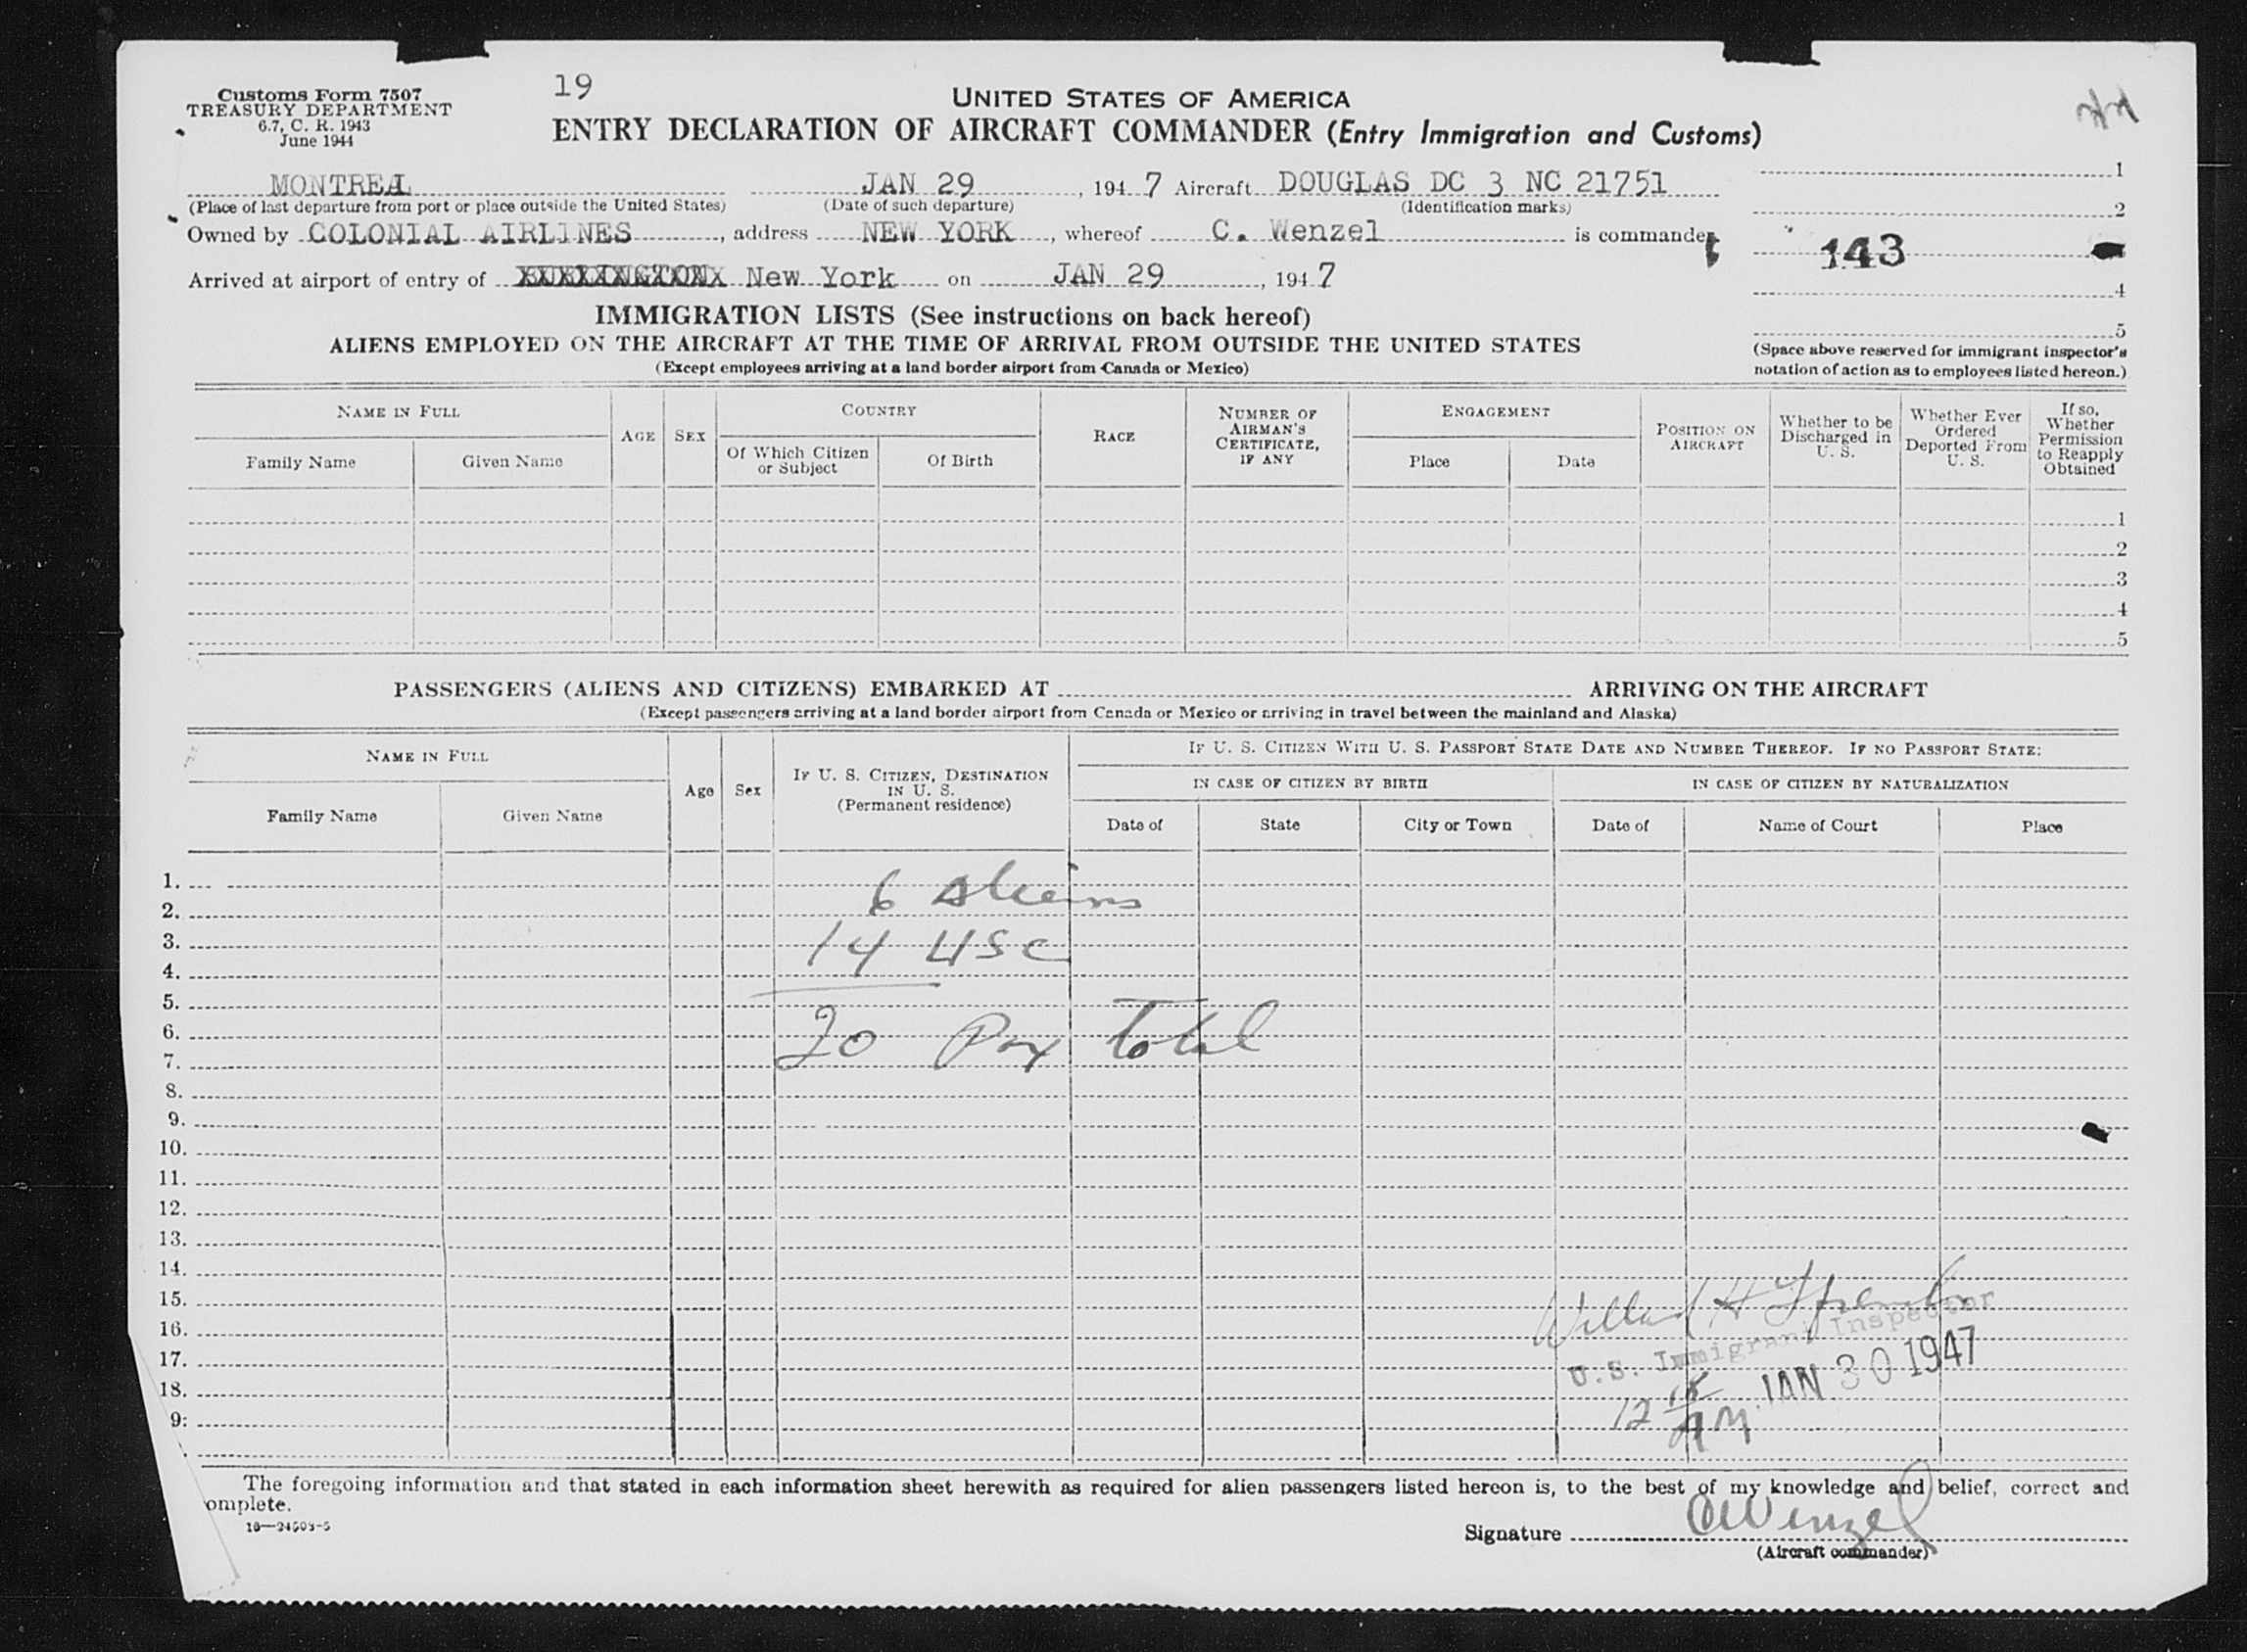 Customs Form 7507
TREASURY DEPARTMENT
6.7, C. R. 1943
June 1944
19
UNITED STATES OF AMERICA
ENTRY DECLARATION OF AIRCRAFT COMMANDER (Entry Immigration and Customs)
MONTREAL JAN 29, 1947 Aircraft DOUGLAS DC 3 NC 21751
(Place of last departure from port or place outside the United States) (Date of such departure) (Identification marks)
Owned by COLONIAL AIRLINES, address NEW YORK, whereof C. Wenzel is commander
Arrived at airport of entry of New York on JAN 29, 1947
1
2
143
4
5
(Space above reserved for immigrant inspector's
notation of action as to employees listed hereon.)
IMMIGRATION LISTS (See instructions on back hereof)
ALIENS EMPLOYED ON THE AIRCRAFT AT THE TIME OF ARRIVAL FROM OUTSIDE THE UNITED STATES
(Except employees arriving at a land border airport from Canada or Mexico)
NAME IN FULL
Family Name Given Name
AGE SEX
COUNTRY
Of Which Citizen or Subject Of Birth
RACE
NUMBER OF AIRMAN'S CERTIFICATE, IF ANY
ENGAGEMENT
Place Date
POSITION ON AIRCRAFT
Whether to be Discharged in U. S.
Whether Ever Ordered Deported From U. S.
If so, Whether Permission to Reapply Obtained
1
2
3
4
5
PASSENGERS (ALIENS AND CITIZENS) EMBARKED AT ARRIVING ON THE AIRCRAFT
(Except passengers arriving at a land border airport from Canada or Mexico or arriving in travel between the mainland and Alaska)
NAME IN FULL
Family Name Given Name
Age Sex
IF U. S. CITIZEN, DESTINATION IN U. S.
(Permanent residence)
IF U. S. CITIZEN WITH U. S. PASSPORT STATE DATE AND NUMBER THEREOF. IF NO PASSPORT STATE:
IN CASE OF CITIZEN BY BIRTH IN CASE OF CITIZEN BY NATURALIZATION
Date of State City or Town Date of Name of Court Place
1.
2. 6 Aliens
3. 14 USC
4.
5.
6. 20 Pax Total
7.
8.
9.
10.
11.
12.
13.
14.
15. Willard H
16.
17. U.S. Immigrant Inspector
18. JAN 30 1947
9: 12 15 AM
The foregoing information and that stated in each information sheet herewith as required for alien passengers listed hereon is, to the best of my knowledge and belief, correct and
omplete.
16—34503-5
Signature C Wenzel
(Aircraft commander)